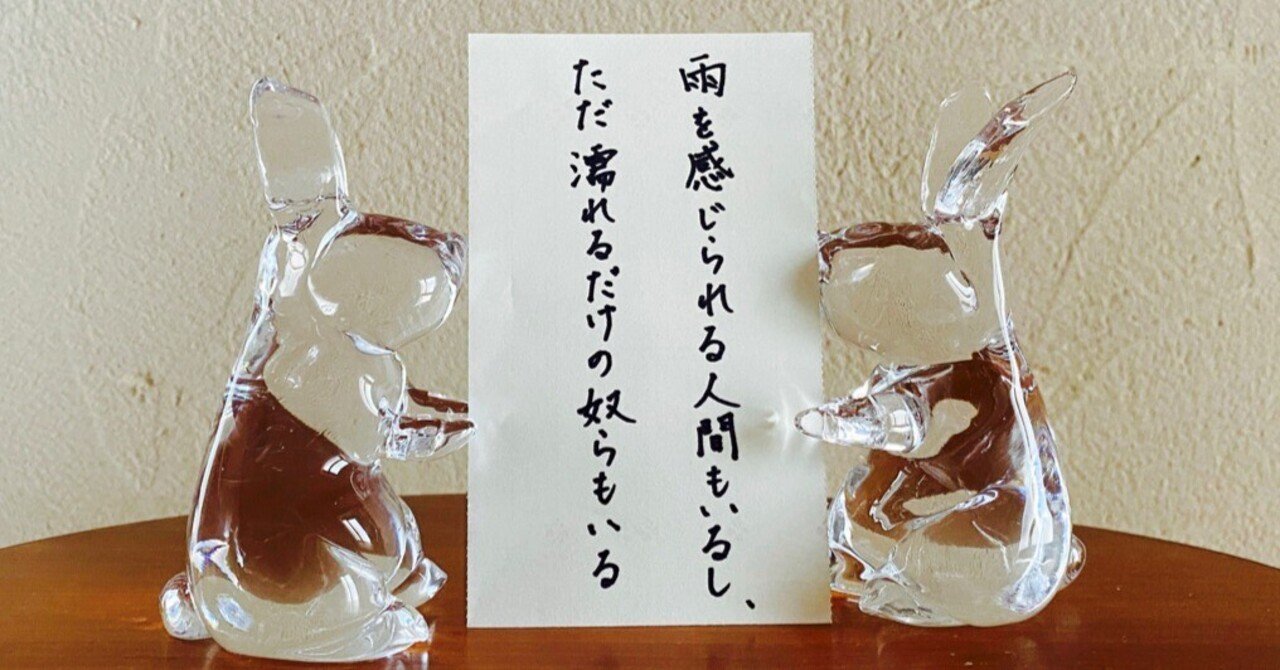 雨を感じられる人間もいるし、
ただ濡れるだけの奴らもいる